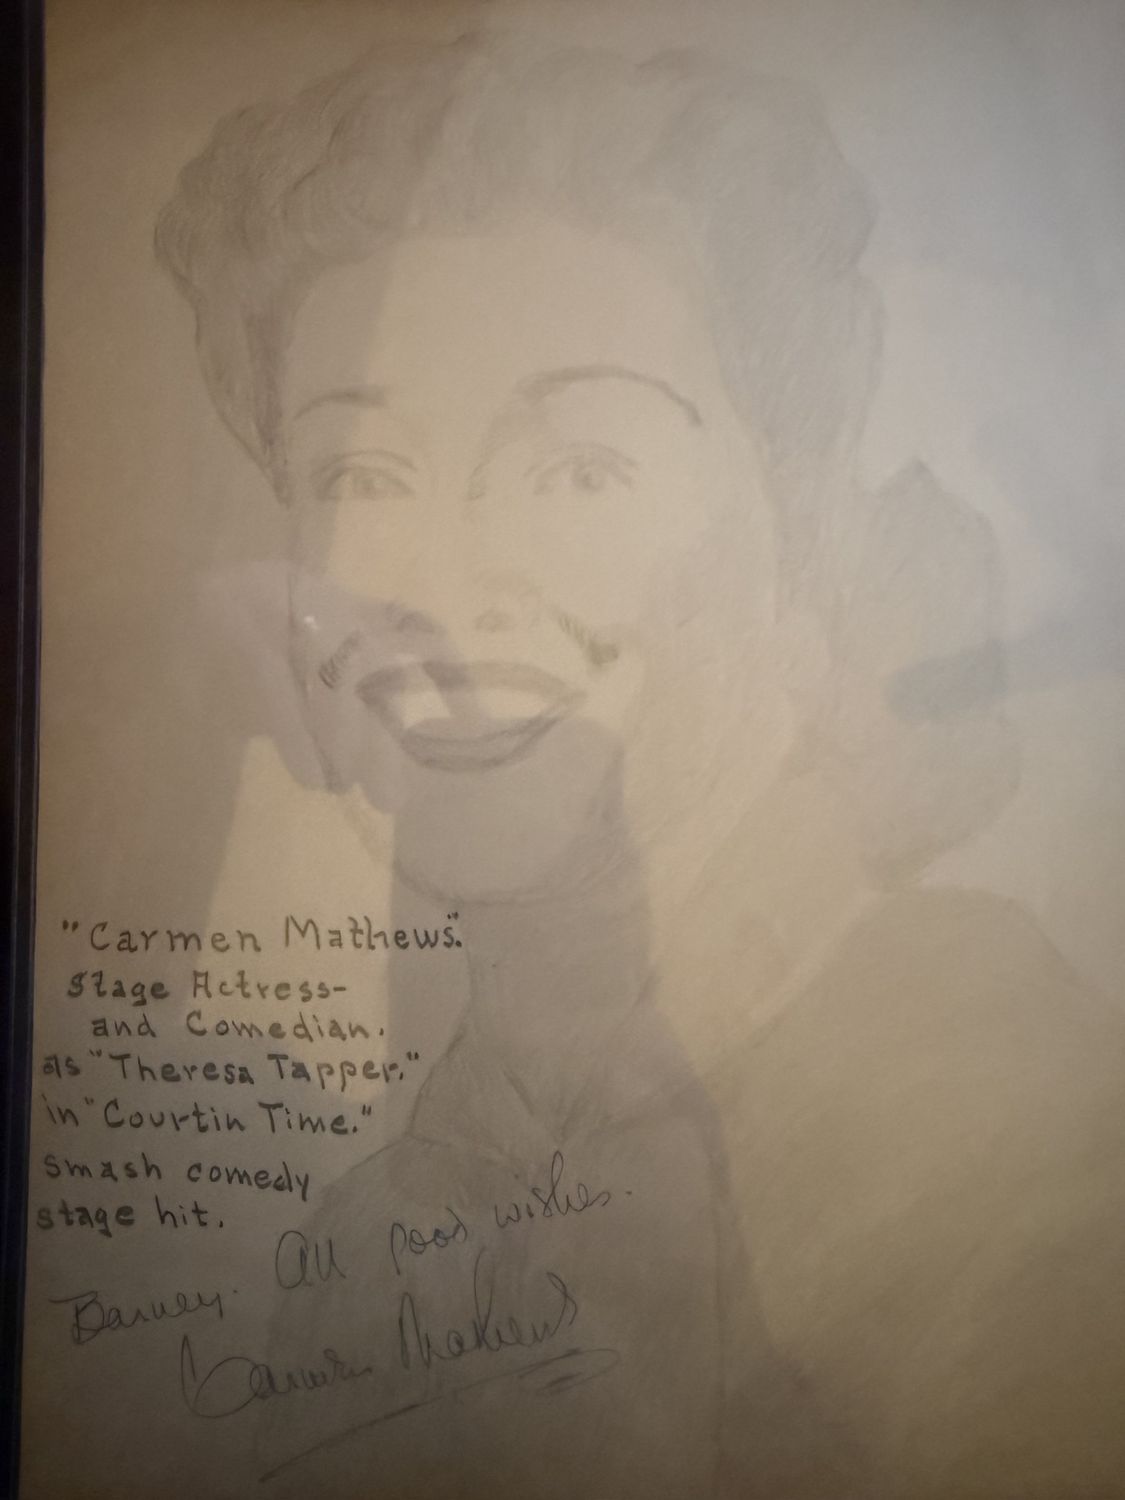 "Carmen Mathews".
Stage Actress-
and Comedian.
as "Theresa Tapper."
in "Courtin Time."
smash comedy
stage hit.
All good wishes.
Barney.
Carmen Mathews